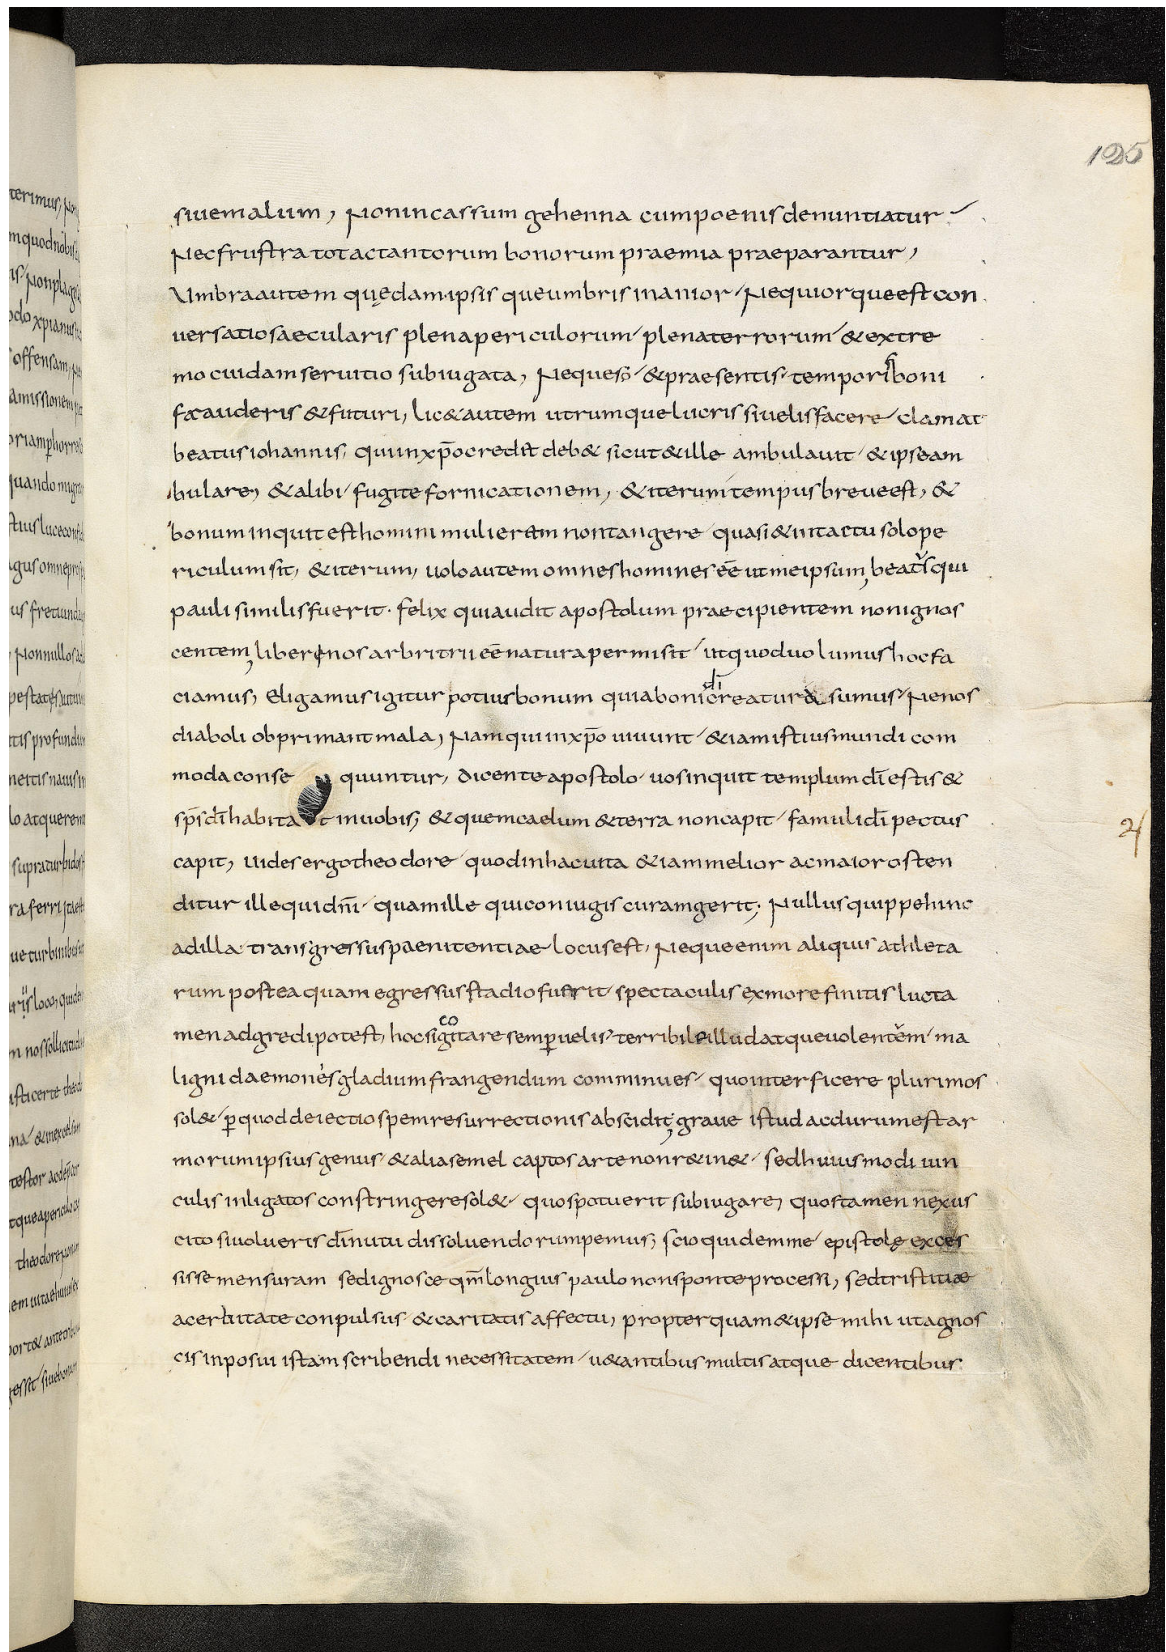 125
siue malum, Non in cassum gehenna cum poenis denuntiatur
Nec frustra tot ac tantorum bonorum praemia praeparantur,
Umbra autem quędam ipsis que umbris inanior Nequior que est con
uersatio saecularis plena periculorum plena terrorum & extre
mo cuidam seruitio subiugata, Neque &praesentis temporis boni
& futuri, lic& autem utrumque lucris si uelis facere clamat
beatus iohannis; qui in xp̄o credit deb& sicut & ille ambulauit & ipse am
bulare, & alibi fugite fornicationem, & iterum tempus breue est, &
bonum inquit est homini mulierem non tangere quasi & in tactu solo pe
riculum sit, & iterum, uolo autem omnes homines eē ut me ipsum, beatus qui
pauli similis fuerit. felix qui audit apostolum praecipientem non ignos
centem, liberi nos arbritrii eē natura permisit ut quod uolumus hoc fa
ciamus, Eligamus igitur potius bonum quia boni dī creatura sumus Ne nos
diaboli obprimant mala, Nam qui in xp̄o uiuunt &iam istius mundi com
moda conse quuntur, dicente apostolo uos inquit templum dī estis &
sp̄s dī habitat in uobis; & quem caelum & terra non capit famuli dī pectus
capit, uides ergo theodore quod in hac uita &iam melior ac maior osten
ditur ille qui dn̄i quam ille qui coniugis curam gerit; Nullus quippe hinc
ad illa transgressus paenitentiae locus est, Neque enim aliquis athleta
rum postea quam egressus stadio fuerit spectaculis ex more finitis lucta
men adgredi potest, hoc si cogitare semper uelis terribile illud atque uolentem ma
ligni daemones gladium frangendum comminues quo interficere plurimos
sol& ꝑ quod deiectio spem resurrectionis abscidit; graue istud ac durum est ar
morum ipsius genus & alia semel captos arte non r&in& sed huiusmodi uin
culis inligatos constringere sol& quos potuerit subiugare, quos tamen nexus
cito si uolueris dī nutu dissoluendo rumpemus; scio quidem me epistolę exces
sisse mensuram sed ignosce qm̄ longius paulo non sponte processi, sed tristitiae
acerbitate conpulsus & caritatis affectu, propter quam & ipse mihi ut agnos
cis inposui istam scribendi necessitatem u&antibus multis atque dicentibus